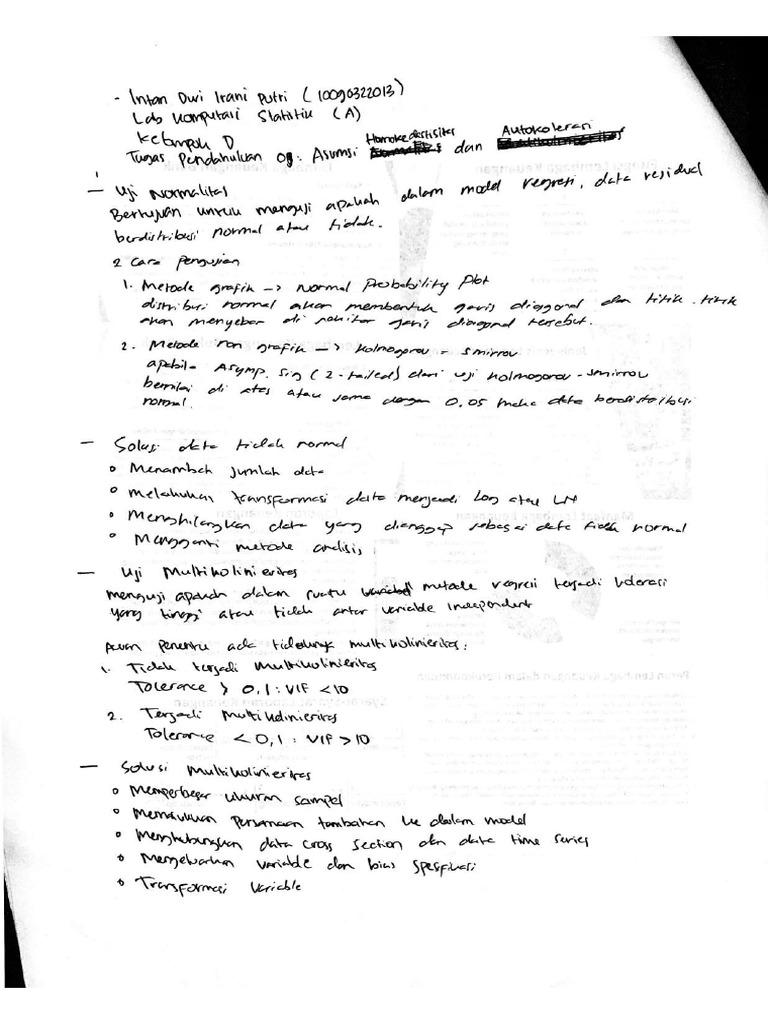 - Intan Dwi Irani Putri (10090322013)
Lab Komputasi Statistik (A)
Kelompok D
Tugas Pendahuluan 08: Asumsi Homokedastisitas dan Autokolerasi
- Uji Normalitas
Bertujuan untuk menguji apakah dalam model regresi, data residual
berdistribusi normal atau tidak.
2 Cara Pengujian
1. Metode grafik -> Normal Probability Plot
distribusi normal akan membentuk garis diagonal dan titik-titik
akan menyebar di sekitar garis diagonal tersebut.
2. Metode non grafik -> Kolmogorov - Smirnov
apabila Asymp. Sig (2-tailed) dari uji Kolmogorov-Smirnov
bernilai di atas atau sama dengan 0.05 maka data berdistribusi
normal.
- Solusi data tidak normal
o Menambah jumlah data
o Melakukan transformasi data menjadi Log atau LN
o Menghilangkan data yang dianggap sebagai data tidak normal
o Mengganti metode analisis
- Uji Multikolinieritas
menguji apakah dalam suatu metode regresi terjadi kolerasi
yang tinggi atau tidak antar variable independent
Acuan penentu ada tidaknya multikolinieritas:
1. Tidak terjadi Multikolinieritas
Tolerance > 0,1 : VIF < 10
2. Terjadi Multikolinieritas
Tolerance < 0,1 : VIF > 10
- Solusi Multikolinieritas
o Memperbesar ukuran sampel
o Memasukkan Persamaan tambahan ke dalam model
o Menghubungkan data cross section dan data time series
o Mengeluarkan variable dan bias spesifikasi
o Transformasi Variable